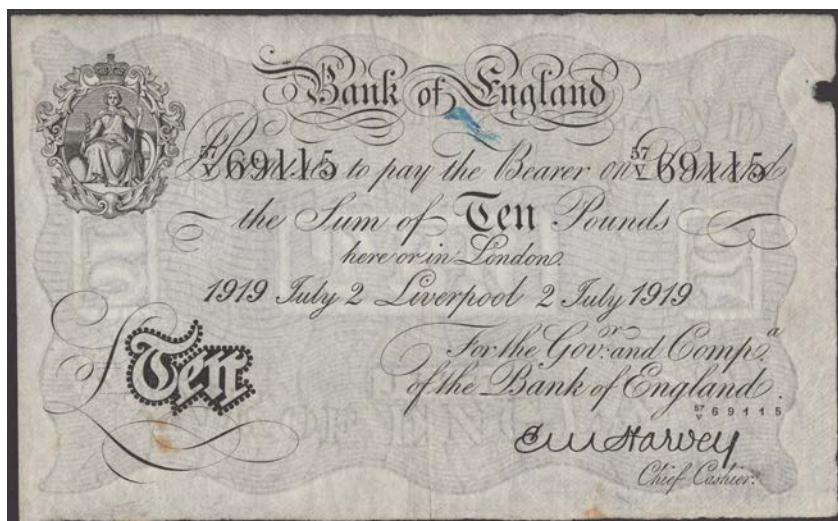 Bank of England
57/V 69115 57/V 69115
I Promise to pay the Bearer on Demand
the Sum of Ten Pounds
here or in London.
1919 July 2 Liverpool 2 July 1919
For the Govr. and Compa.
of the Bank of England.
57/V 69115
£Ten
E M Harvey
Chief Cashier.